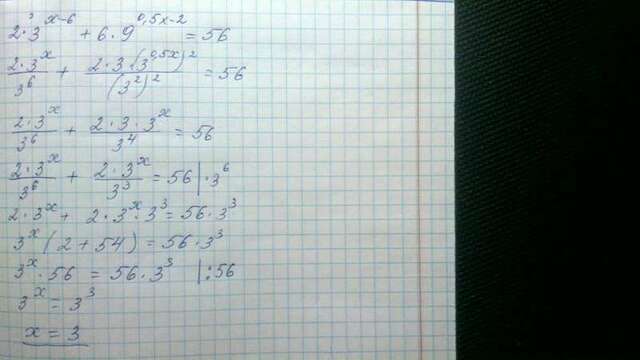 2·3^{x-6} + 6·9^{0,5x-2} = 56
\frac{2·3^x}{3^6} + \frac{2·3·(3^{0,5x})^2}{(3^2)^2} = 56
\frac{2·3^x}{3^6} + \frac{2·3·3^x}{3^4} = 56
\frac{2·3^x}{3^6} + \frac{2·3^x}{3^3} = 56 |·3^6
2·3^x + 2·3^x·3^3 = 56·3^3
3^x(2 + 54) = 56·3^3
3^x·56 = 56·3^3 |:56
3^x = 3^3
x = 3